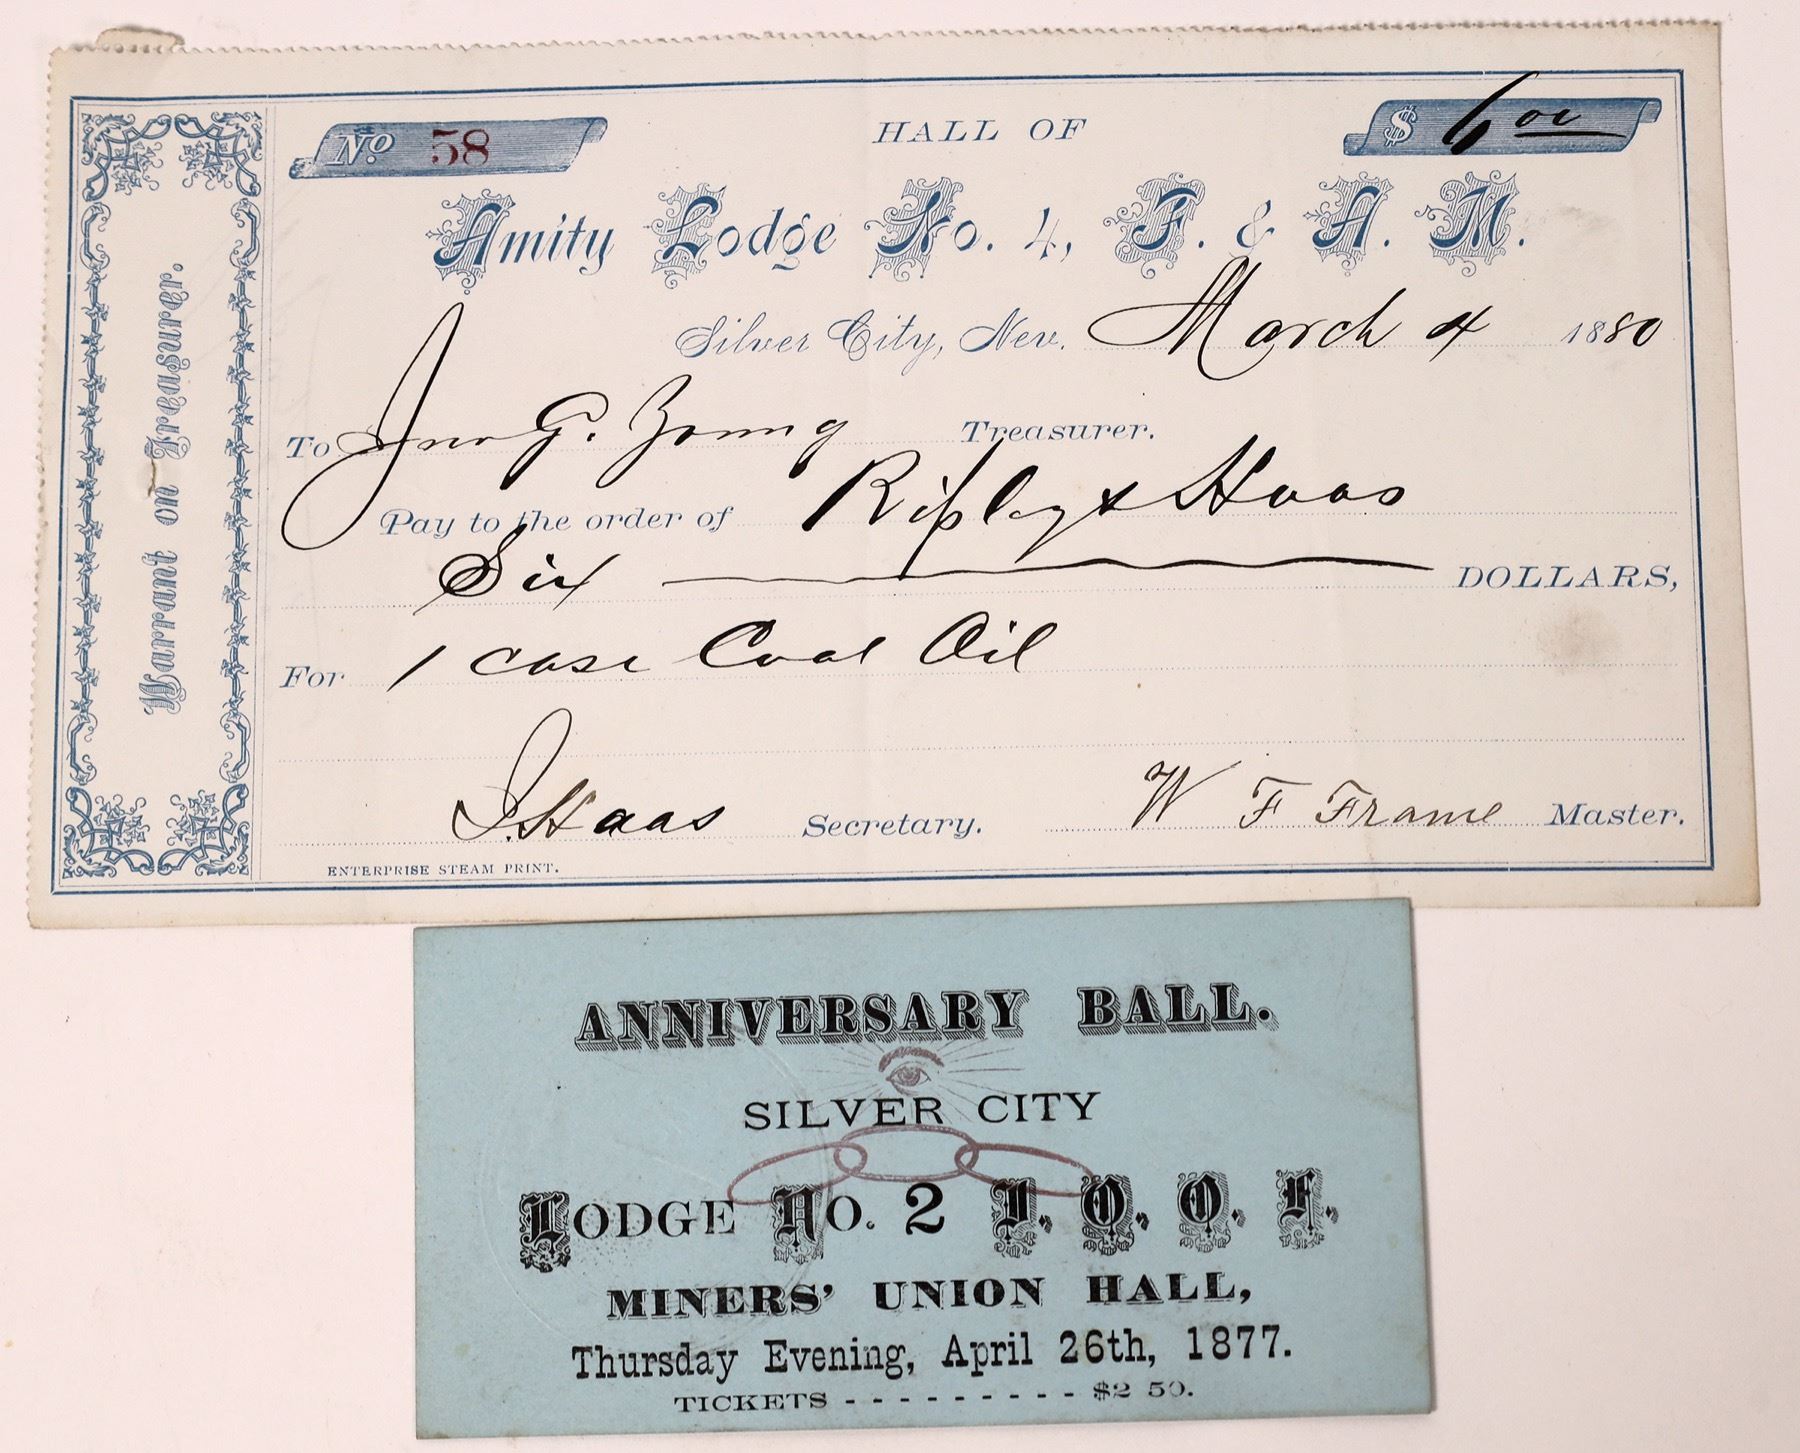 No. 58
HALL OF
$ 6 00
Amity Lodge No. 4, F. & A. M.
Silver City, Nev. March 4 1880
To Jno G. Young Treasurer.
Pay to the order of Ripley & Haas
Six DOLLARS,
For 1 case Coal Oil
I. Haas Secretary. W F Frame Master.
ENTERPRISE STEAM PRINT.
Warrant on Treasurer.
ANNIVERSARY BALL.
SILVER CITY
LODGE NO. 2 I. O. O. F.
MINERS' UNION HALL,
Thursday Evening, April 26th, 1877.
TICKETS - - - - - - - - - $2 50.